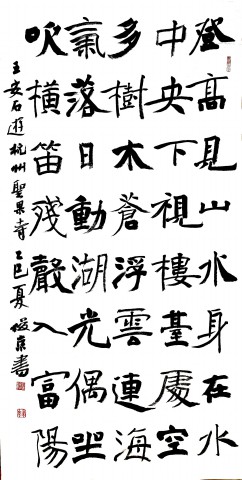 登高見山水身在水
中央下視樓臺處空
多樹木蒼浮雲連海
氣落日動湖光偶坐
吹橫笛殘聲入富陽
王安石遊杭州聖果寺 乙巳夏 書